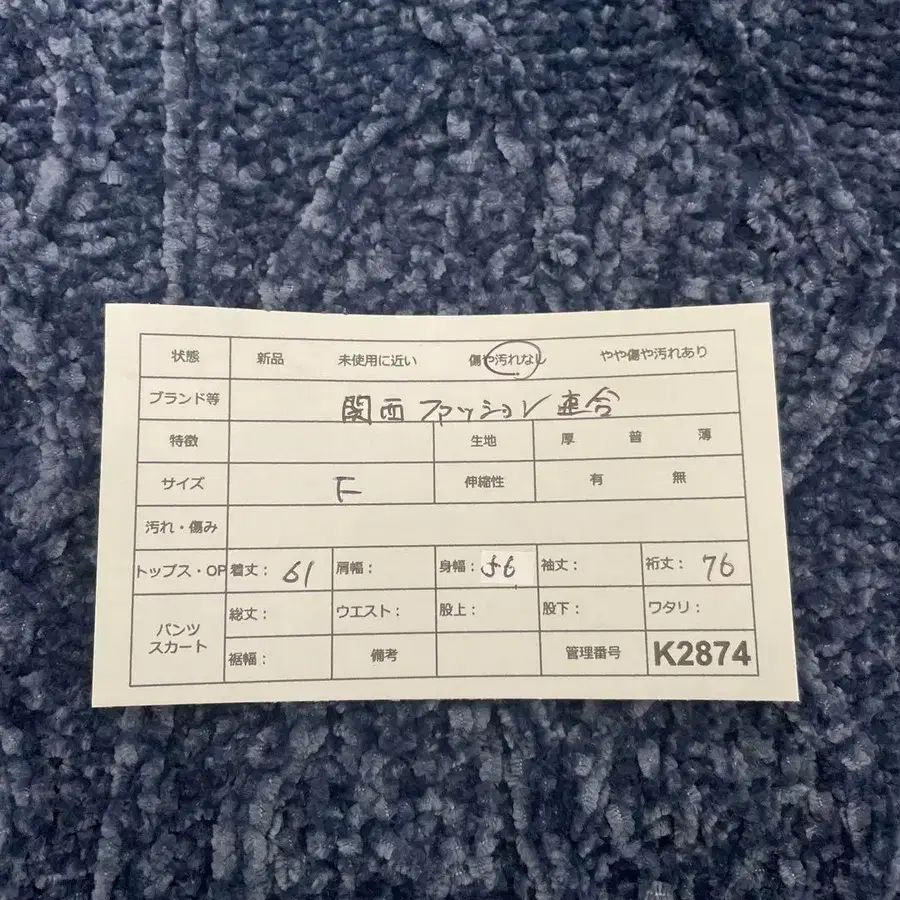 状態 新品 未使用に近い 傷や汚れなし やや傷や汚れあり
ブランド等 関西ファッション連合
特徴 生地 厚 普 薄
サイズ F 伸縮性 有 無
汚れ・傷み
トップス・OP 着丈: 61 肩幅: 身幅: 56 袖丈: 裄丈: 76
パンツ
スカート
総丈: ウエスト: 股上: 股下: ワタリ:
裾幅: 備考 管理番号 K2874